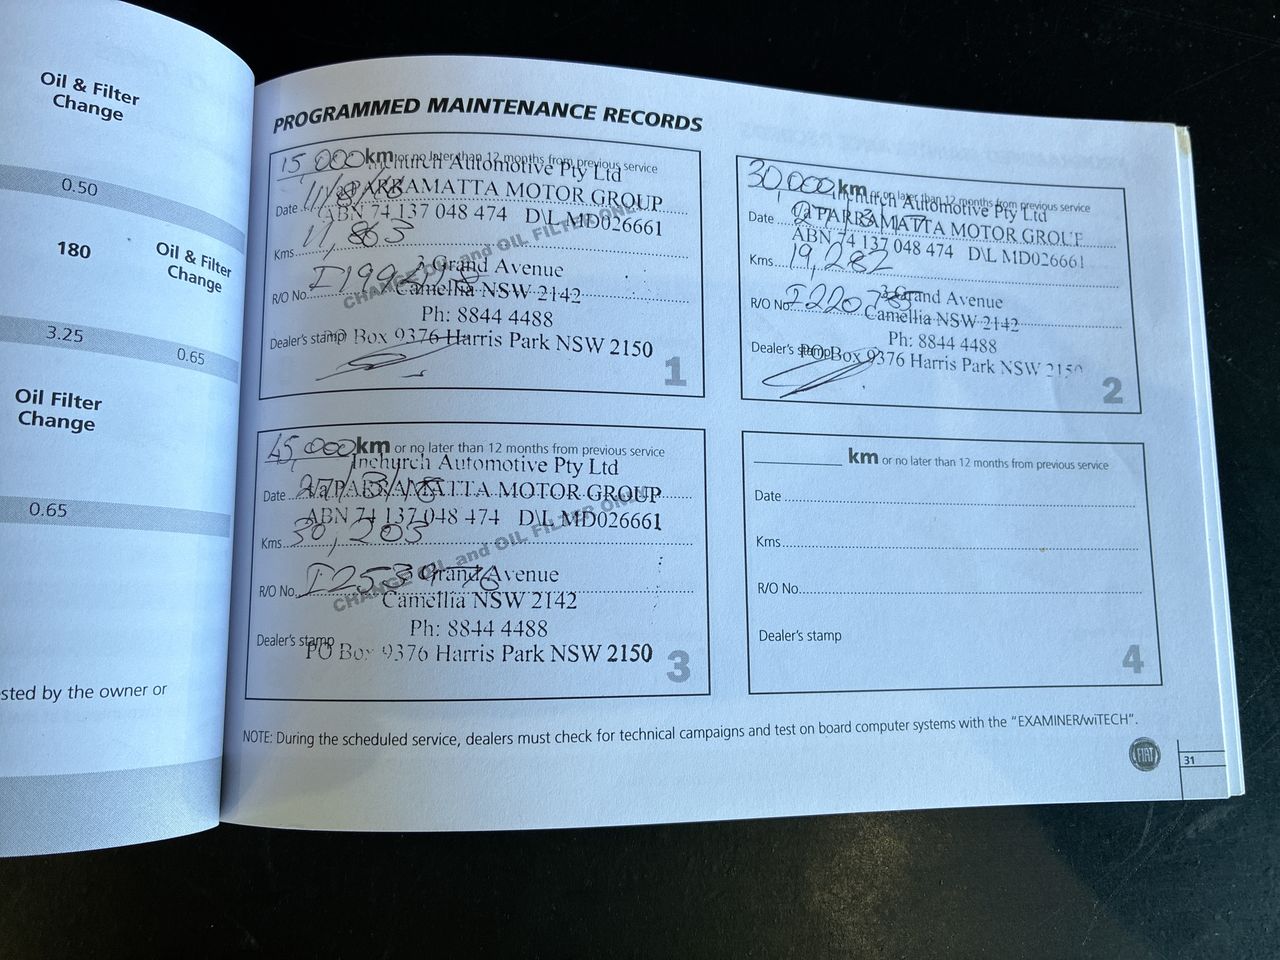 Oil & Filter
Change
0.50
180
Oil & Filter
Change
3.25
0.65
Oil Filter
Change
0.65
sted by the owner or
PROGRAMMED MAINTENANCE RECORDS
15,000 km or no later than 12 months from previous service
Inchurch Automotive Pty Ltd
t/a PARRAMATTA MOTOR GROUP
Date
ABN 74 137 048 474 D\L MD026661
Kms 11,863
CHANGE OIL and OIL FILTER ONLY
3 Grand Avenue
R/O No.
Camellia NSW 2142
Ph: 8844 4488
Dealer's stamp
PO Box 9376 Harris Park NSW 2150
1
30,000 km or no later than 12 months from previous service
Inchurch Automotive Pty Ltd
Date 27/3/17
t/a PARRAMATTA MOTOR GROUP
ABN 74 137 048 474 D\L MD026661
Kms 19,282
3 Grand Avenue
R/O No. I220785
Camellia NSW 2142
Ph: 8844 4488
Dealer's stamp
PO Box 9376 Harris Park NSW 2150
2
45,000 km or no later than 12 months from previous service
Inchurch Automotive Pty Ltd
Date 27/3/18
t/a PARRAMATTA MOTOR GROUP
ABN 74 137 048 474 D\L MD026661
Kms 30,203
CHANGE OIL and OIL FILTER ONLY
3 Grand Avenue
R/O No. I253976
Camellia NSW 2142
Ph: 8844 4488
Dealer's stamp
PO Box 9376 Harris Park NSW 2150
3
km or no later than 12 months from previous service
Date
Kms
R/O No.
Dealer's stamp
4
NOTE: During the scheduled service, dealers must check for technical campaigns and test on board computer systems with the "EXAMINER/wiTECH".
FIAT
31